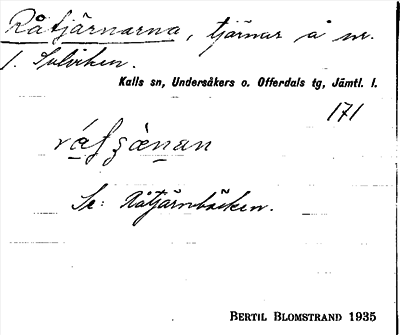 Råtjärnarna, tjärnar å nr.
1. Sulviken.
Kalls sn, Undersåkers o. Offerdals tg, Jämtl. l.
171
Se: Råtjärnbäcken.
BERTIL BLOMSTRAND 1935